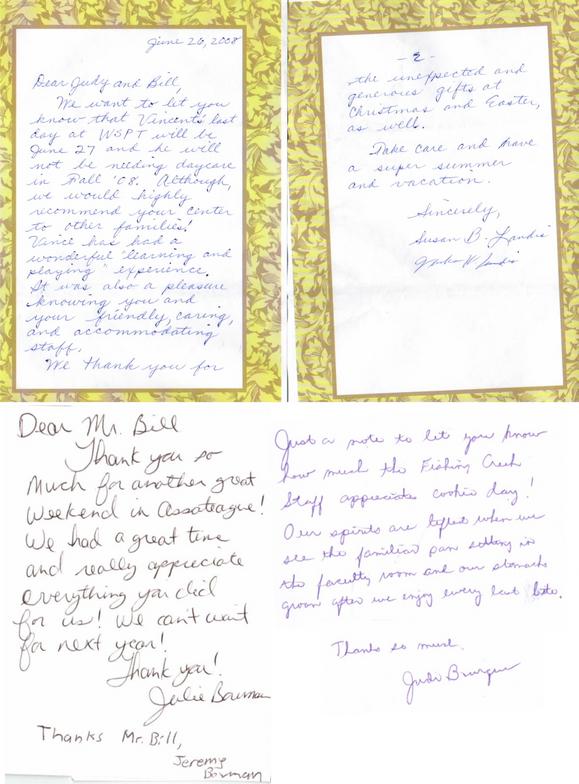 June 26, 2008
Dear Judy and Bill,
We want to let you
know that Vincent's last
day at WSPT will be
June 27 and he will
not be needing daycare
in Fall '08. Although,
we would highly
recommend your center
to other families!
Vance has had a
wonderful "learning and
playing" experience.
It was also a pleasure
knowing you and
your friendly, caring,
and accommodating
staff.
We thank you for
- 2 -
the unexpected and
generous gifts at
Christmas and Easter,
as well.
Take care and have
a super summer
and vacation.
Sincerely,
Susan B. Landis
Landis
Dear Mr. Bill
Thank you so
much for another great
weekend in Assateague!
We had a great time
and really appreciate
everything you did
for us! We can't wait
for next year!
Thank you!
Julie Bowman
Thanks Mr. Bill,
Jeremy
Bowman
Just a note to let you know
how much the Fishing Creek
Staff appreciates cookie day!
Our spirits are lifted when we
see the familiar pans sitting in
the faculty room and our stomachs
groan after we enjoy every last bite.
Thanks so much.
Judi